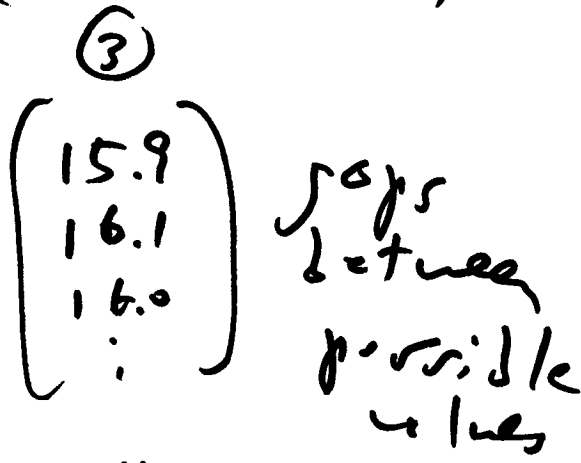 3
15.9
16.1
16.0
⋮
gaps
between
possible
values